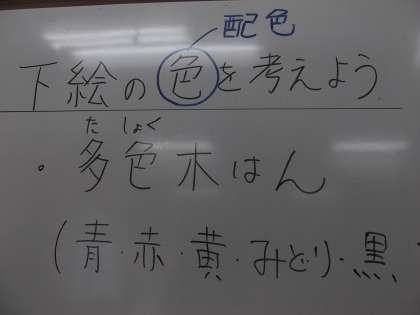 配色
下絵の色を考えよう
たしょく
・多色木はん
(青・赤・黄・みどり・黒